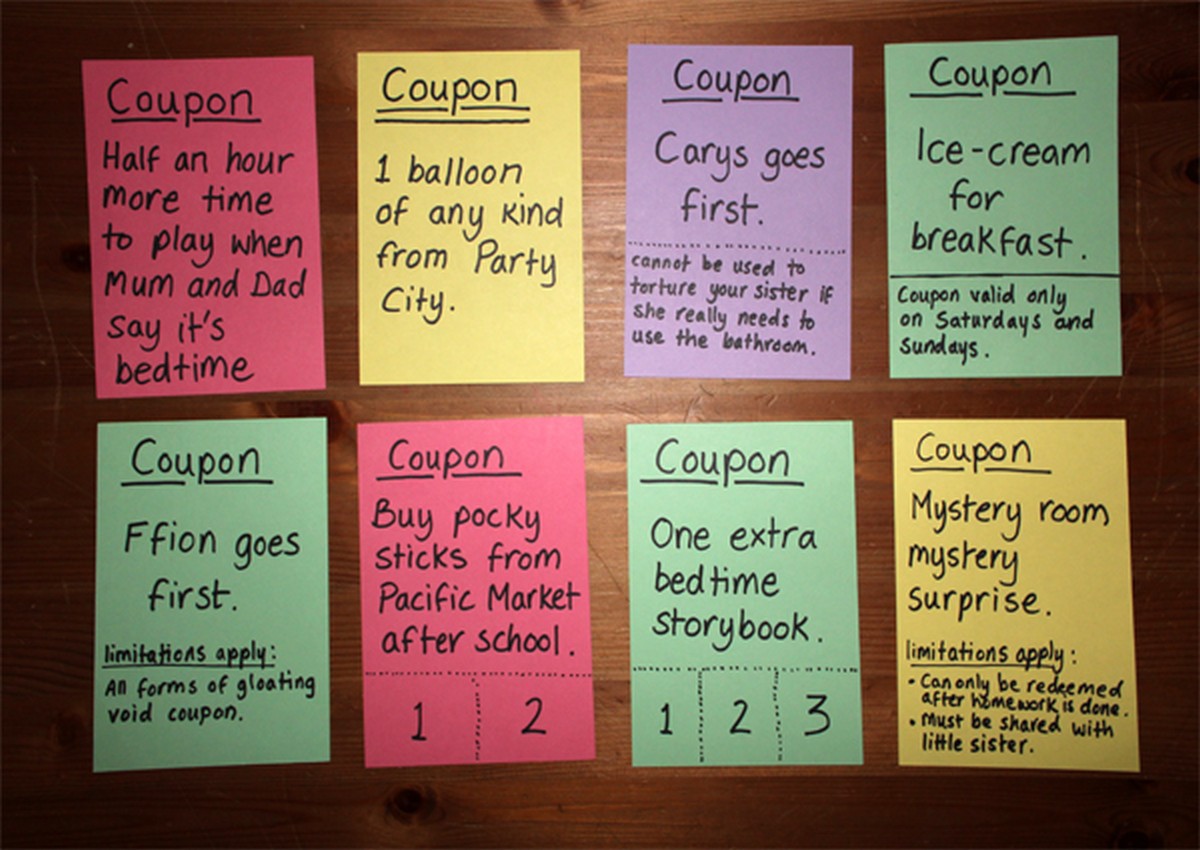 Coupon
Half an hour
more time
to play when
Mum and Dad
say it's
bedtime
Coupon
1 balloon
of any kind
from Party
City.
Coupon
Carys goes
first.
cannot be used to
torture your sister if
she really needs to
use the bathroom.
Coupon
Ice-cream
for
breakfast.
Coupon valid only
on Saturdays and
Sundays.
Coupon
Ffion goes
first.
limitations apply:
All forms of gloating
void coupon.
Coupon
Buy pocky
sticks from
Pacific Market
after school.
1 2
Coupon
One extra
bedtime
storybook.
1 2 3
Coupon
Mystery room
mystery
surprise.
limitations apply:
• Can only be redeemed
after homework is done.
• Must be shared with
little sister.